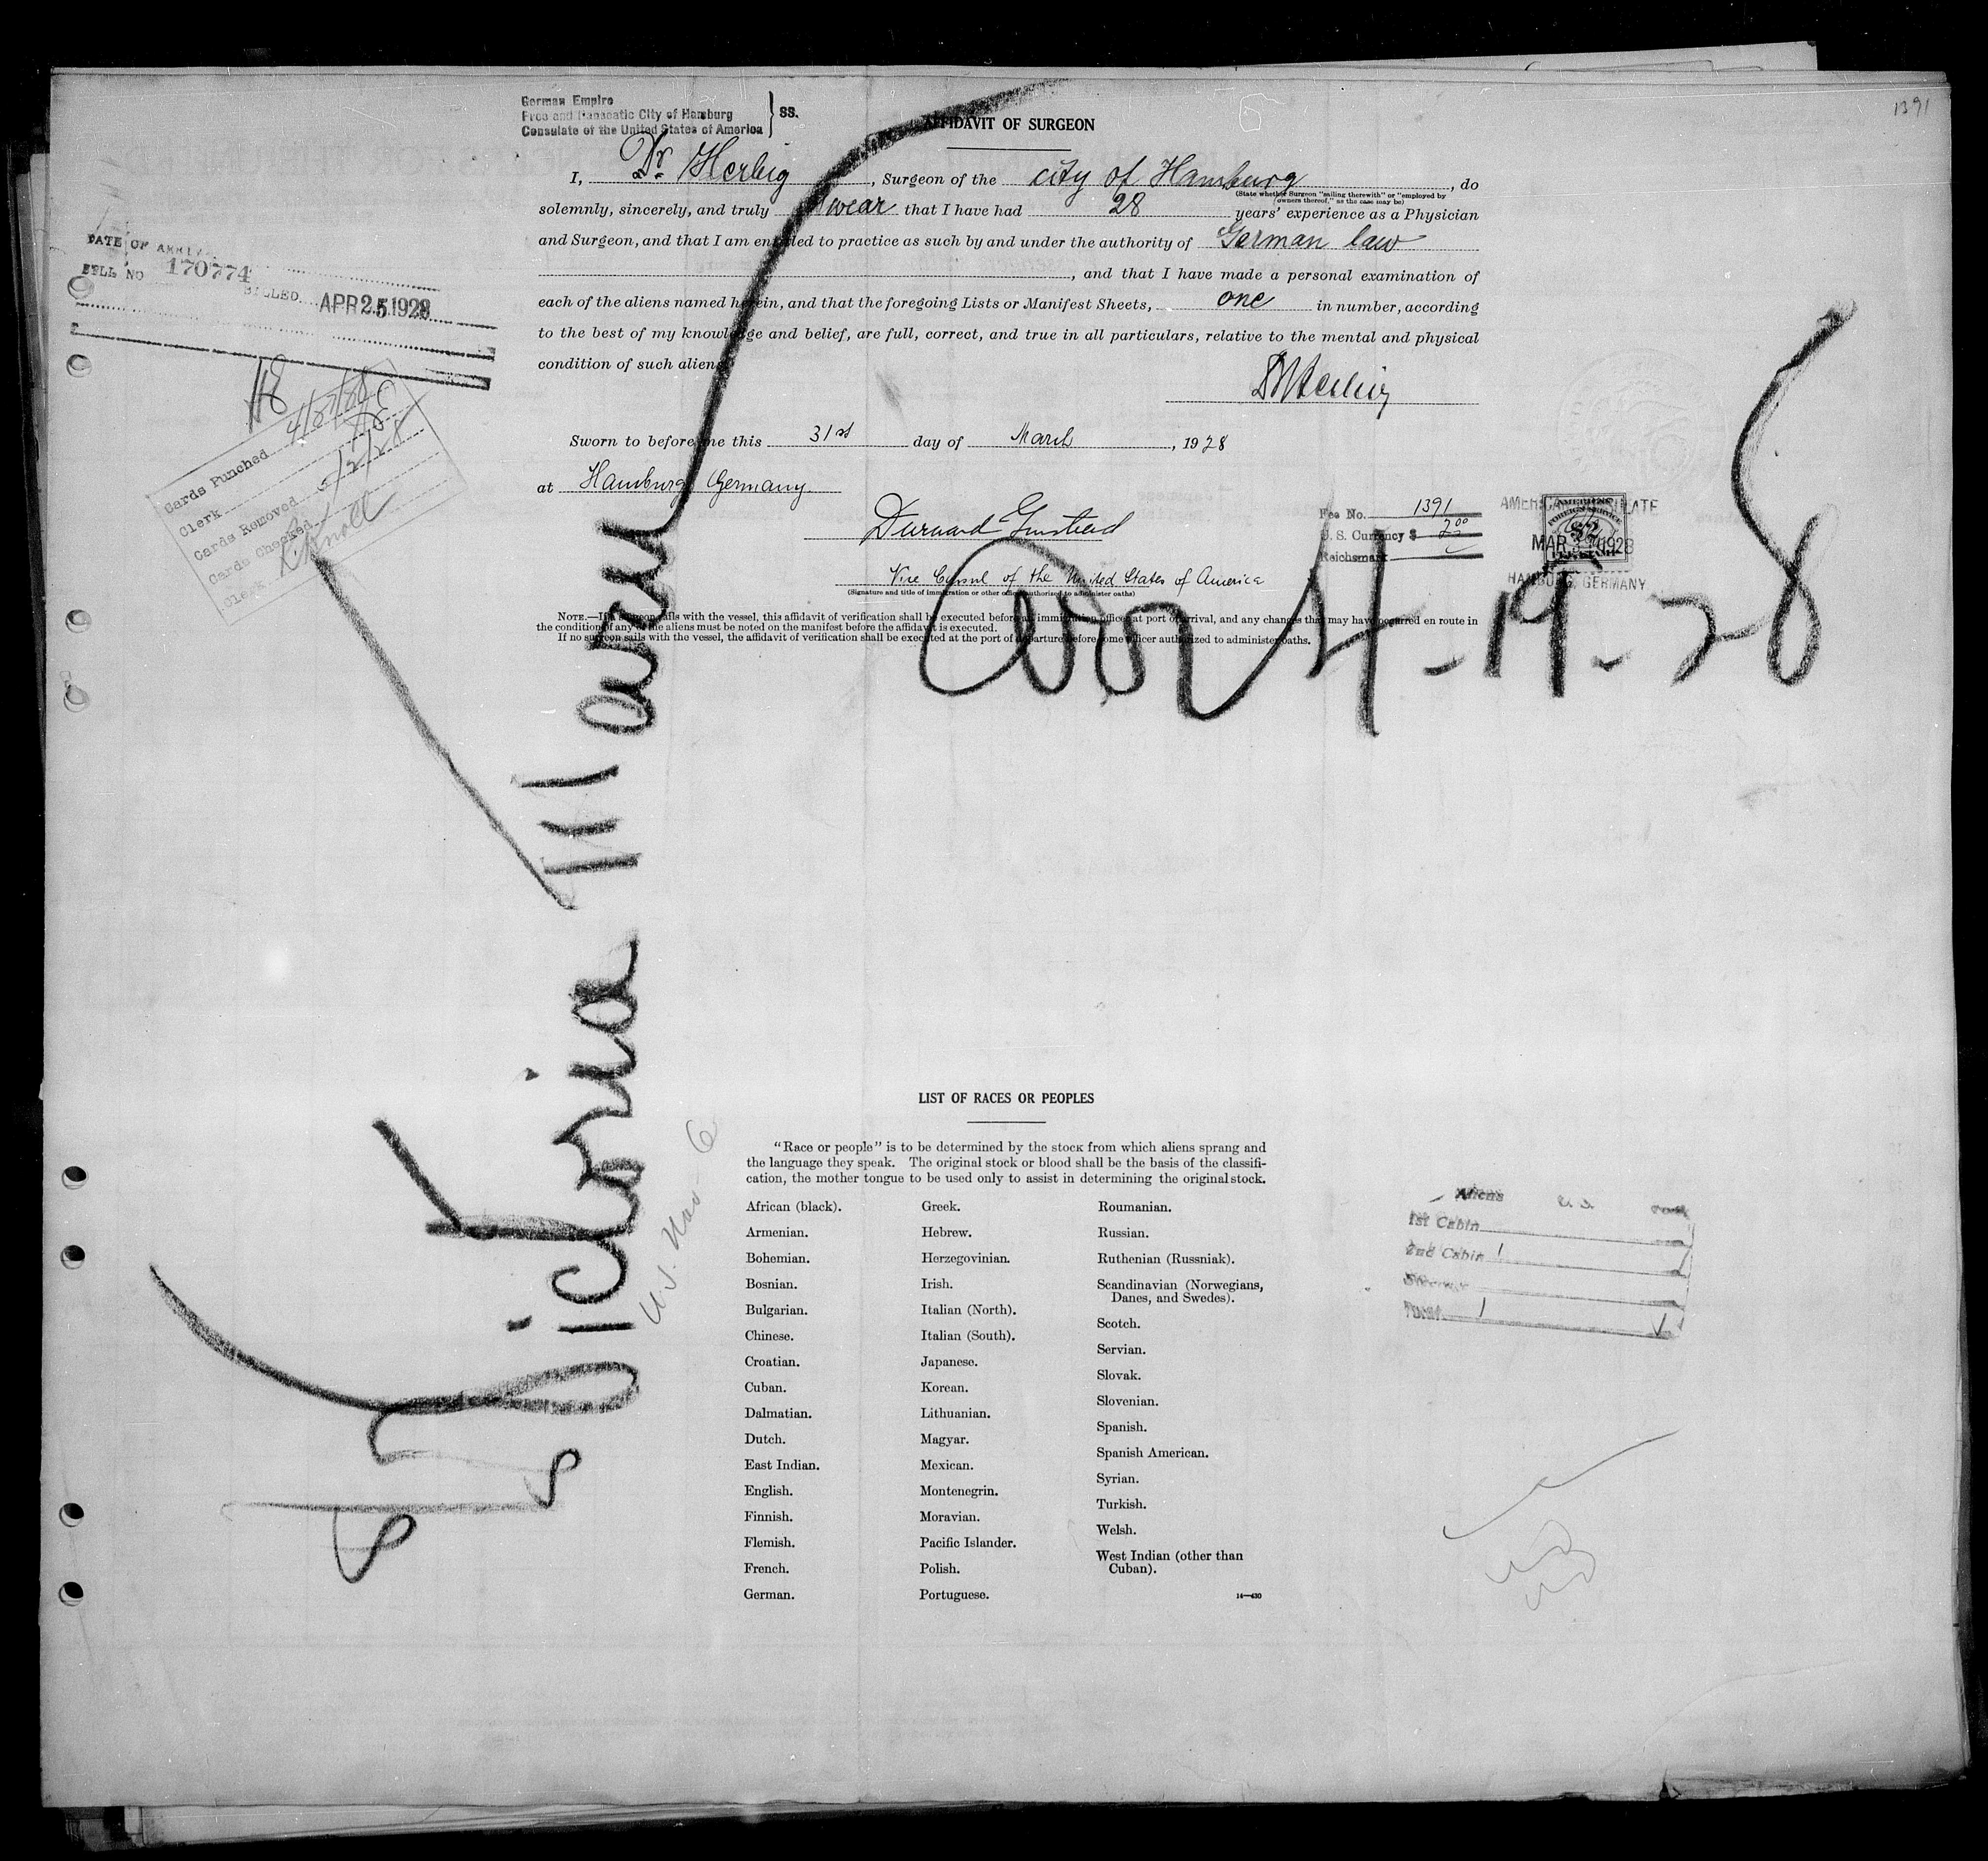 1391
German Empire
Free and Hanseatic City of Hamburg
Consulate of the United States of America } SS.
AFFIDAVIT OF SURGEON
I, Dr. Herbig, Surgeon of the city of Hamburg, do
(State whether Surgeon "sailing therewith" or "employed by owners thereof," as the case may be)
solemnly, sincerely, and truly swear that I have had 28 years' experience as a Physician
and Surgeon, and that I am entitled to practice as such by and under the authority of German law
, and that I have made a personal examination of
each of the aliens named herein, and that the foregoing Lists or Manifest Sheets, one in number, according
to the best of my knowledge and belief, are full, correct, and true in all particulars, relative to the mental and physical
condition of such aliens.
Dr Herbig
Sworn to before me this 31st day of March, 1928
at Hamburg, Germany
Vice Consul of the United States of America
(Signature and title of immigration or other officer authorized to administer oaths)
Fee No. 1391
U. S. Currency $ 2.00
Reichsmark
AMERICAN CONSULATE
AMERICAN
FOREIGN SERVICE
$2
MAR 31 1928
HAMBURG, GERMANY
NOTE.—If a surgeon sails with the vessel, this affidavit of verification shall be executed before an immigration officer at port of arrival, and any changes that may have occurred en route in
the condition of any of the aliens must be noted on the manifest before the affidavit is executed.
If no surgeon sails with the vessel, the affidavit of verification shall be executed at the port of departure before some officer authorized to administer oaths.
DATE OF ARRIVAL
BILL NO 170774
BILLED APR 25 1928
Cards Punched 4/27/28
Clerk
Cards Removed
Cards Checked
Clerk Knoll
4-19-28
Victoria
U.S. Nav 6
LIST OF RACES OR PEOPLES
"Race or people" is to be determined by the stock from which aliens sprang and
the language they speak. The original stock or blood shall be the basis of the classifi-
cation, the mother tongue to be used only to assist in determining the original stock.
African (black).
Armenian.
Bohemian.
Bosnian.
Bulgarian.
Chinese.
Croatian.
Cuban.
Dalmatian.
Dutch.
East Indian.
English.
Finnish.
Flemish.
French.
German.
Greek.
Hebrew.
Herzegovinian.
Irish.
Italian (North).
Italian (South).
Japanese.
Korean.
Lithuanian.
Magyar.
Mexican.
Montenegrin.
Moravian.
Pacific Islander.
Polish.
Portuguese.
Roumanian.
Russian.
Ruthenian (Russniak).
Scandinavian (Norwegians,
Danes, and Swedes).
Scotch.
Servian.
Slovak.
Slovenian.
Spanish.
Spanish American.
Syrian.
Turkish.
Welsh.
West Indian (other than
Cuban).
14—430
Aliens U. S.
1st Cabin
2nd Cabin 1
Total 1